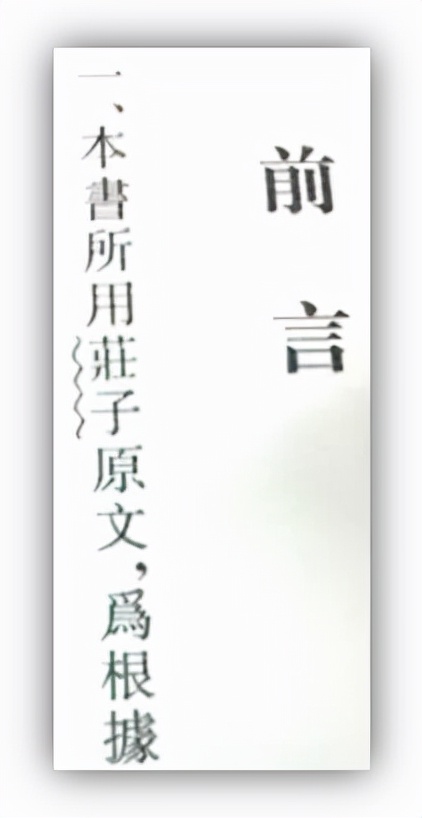 前言
一、本書所用莊子原文，爲根據